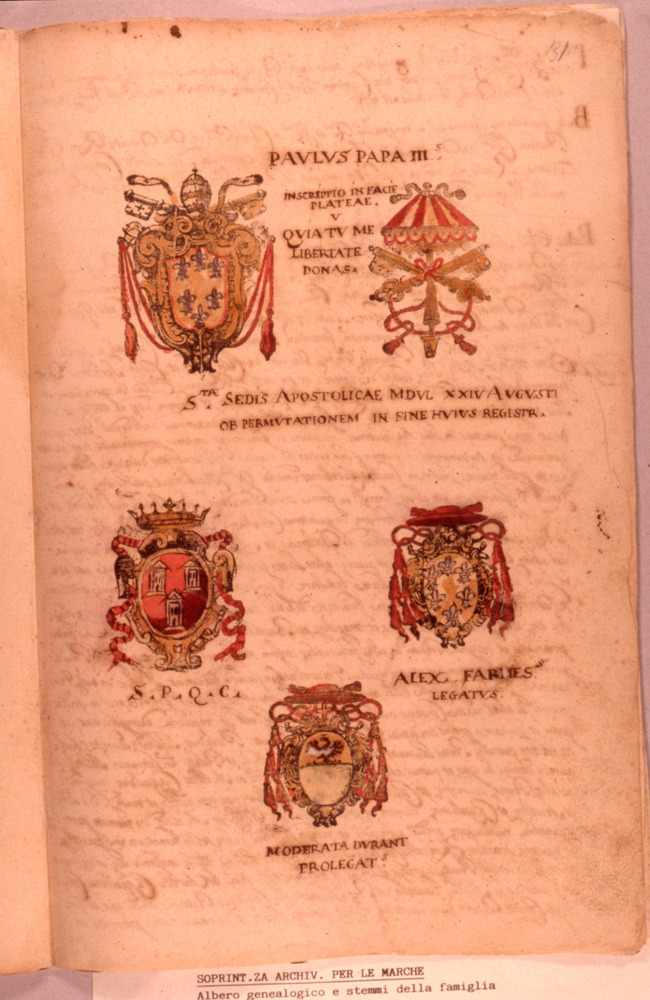 131
PAVLVS PAPA III.S
INSCRIPTIO IN FACIE
PLATEAE.
V
QVIA TV ME
LIBERTATE
DONAS.
S.TAE SEDIS APOSTOLICAE MDVL XXIV AVGVSTI
OB PERMVTATIONEM IN FINE HVIVS REGISTR.
S. P. Q. C.
ALEX. FARNES.S
LEGATVS.
MODERATA DVRANT
PROLEGAT.S
SOPRINT.ZA ARCHIV. PER LE MARCHE
Albero genealogico e stemmi della famiglia